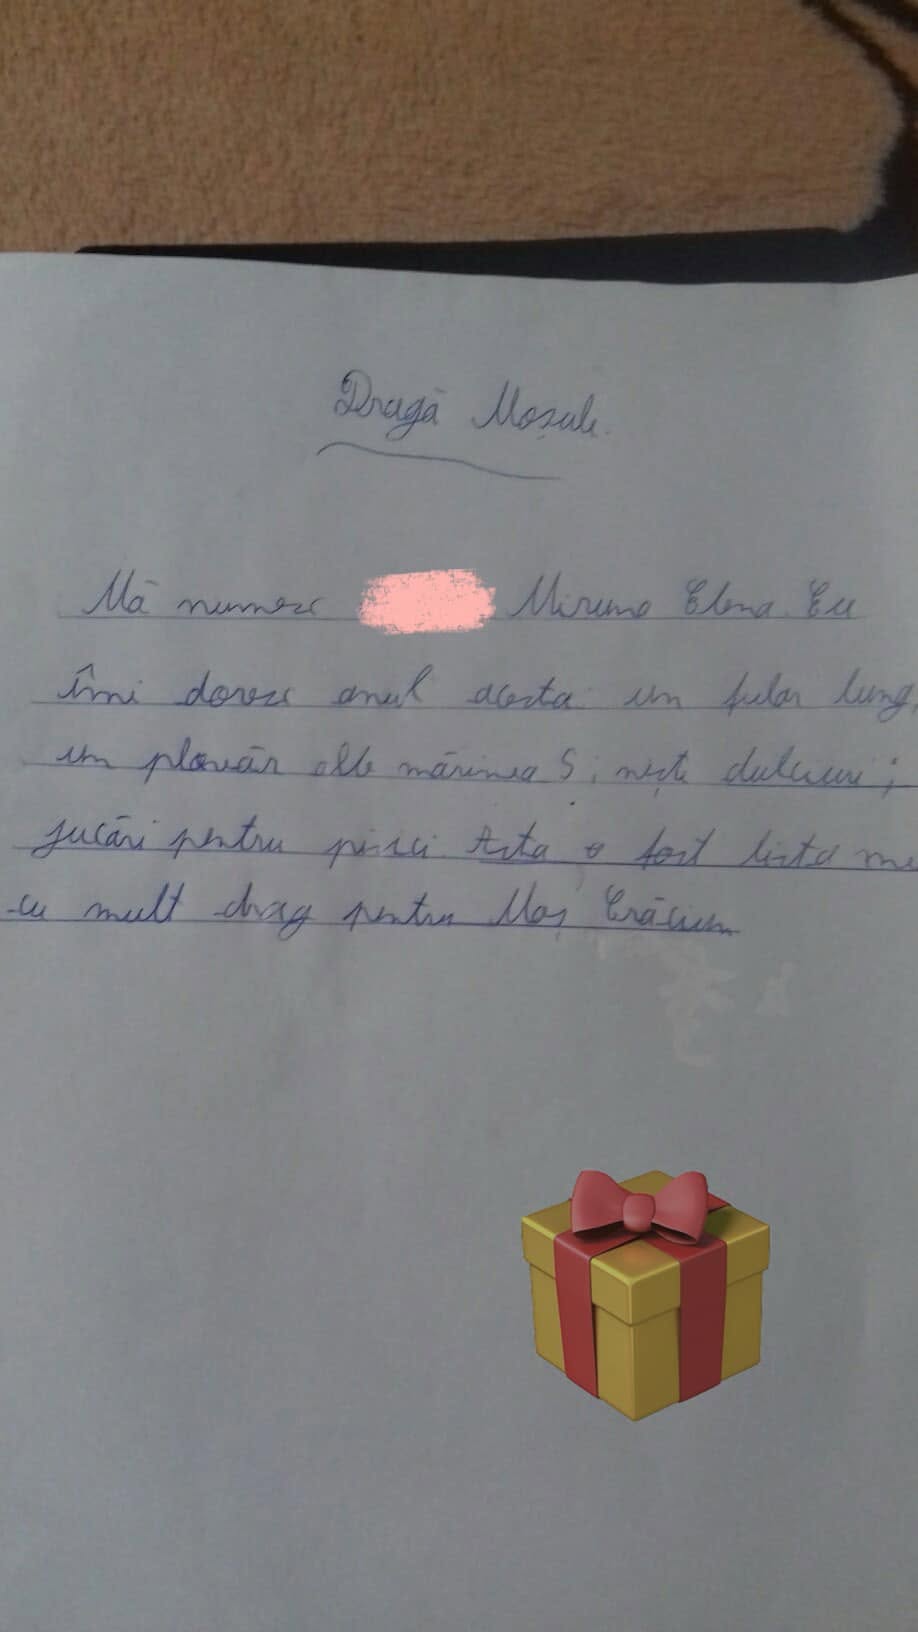 Dragă Moșule.
Mă numesc Miruna Elena. Eu
îmi doresc anul acesta: un fular lung,
un plovăr alb mărimea S; niște dulciuri;
jucări pentru pisici. Asta a fost lista me
cu mult drag pentru Moș Crăciun